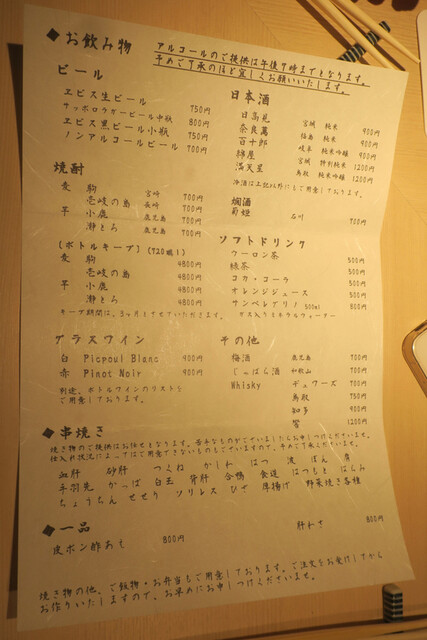 ◆お飲み物
アルコールのご提供は午後7時までとなります。
予めご了承のほど宜しくお願いいたします。
ビール
ヱビス生ビール 750円
サッポロラガービール中瓶 800円
ヱビス黒ビール小瓶 750円
ノンアルコールビール 700円
焼酎
麦 駒 宮崎 700円
壱岐の島 長崎 700円
芋 小鹿 鹿児島 700円
灘とろ 鹿児島 700円
[ボトルキープ] (720ml)
麦 駒 4800円
壱岐の島 4800円
芋 小鹿 4800円
灘とろ 4800円
キープ期間は、3ヶ月とさせていただきます。
グラスワイン
白 Picpoul Blanc 900円
赤 Pinot Noir 900円
別途、ボトルワインのリストを
ご用意しております。
日本酒
日高見 宮城 純米 900円
奈良萬 福島 純米 900円
百十郎 岐阜 純米吟醸 900円
綿屋 宮城 特別純米 1200円
満天星 鳥取 純米吟醸 1200円
冷酒は上記以外にもご用意しております。
燗酒
菊姫 石川 700円
ソフトドリンク
ウーロン茶 500円
緑茶 500円
コカ・コーラ 500円
オレンジジュース 500円
サンペレグリノ 500ml 800円
ガス入りミネラルウォーター
その他
梅酒 鹿児島 700円
じゃばら酒 和歌山 700円
Whisky デュワーズ 700円
鳥取 750円
知多 900円
響 1200円
◆串焼き
焼き物のご提供はお任せとなります。苦手なものがございましたらお申しつけくださいませ。
仕入れ状況によってはご用意できないものもございますので、予めご了承くださいませ。
血肝 砂肝 つくね かしわ はつ ぼん 肩
手羽先 かっぱ 白玉 背肝 合鴨 食道 はつもと はらみ
ちょうちん せせり ソリレス ひざ 厚揚げ 野菜焼き各種
◆一品
皮ポン酢あえ 800円
肝わさ 800円
焼き物の他、ご飯物・お弁当もご用意しております。ご注文をお受けしてから
お作りいたしますので、お早めにお申しつけくださいませ。